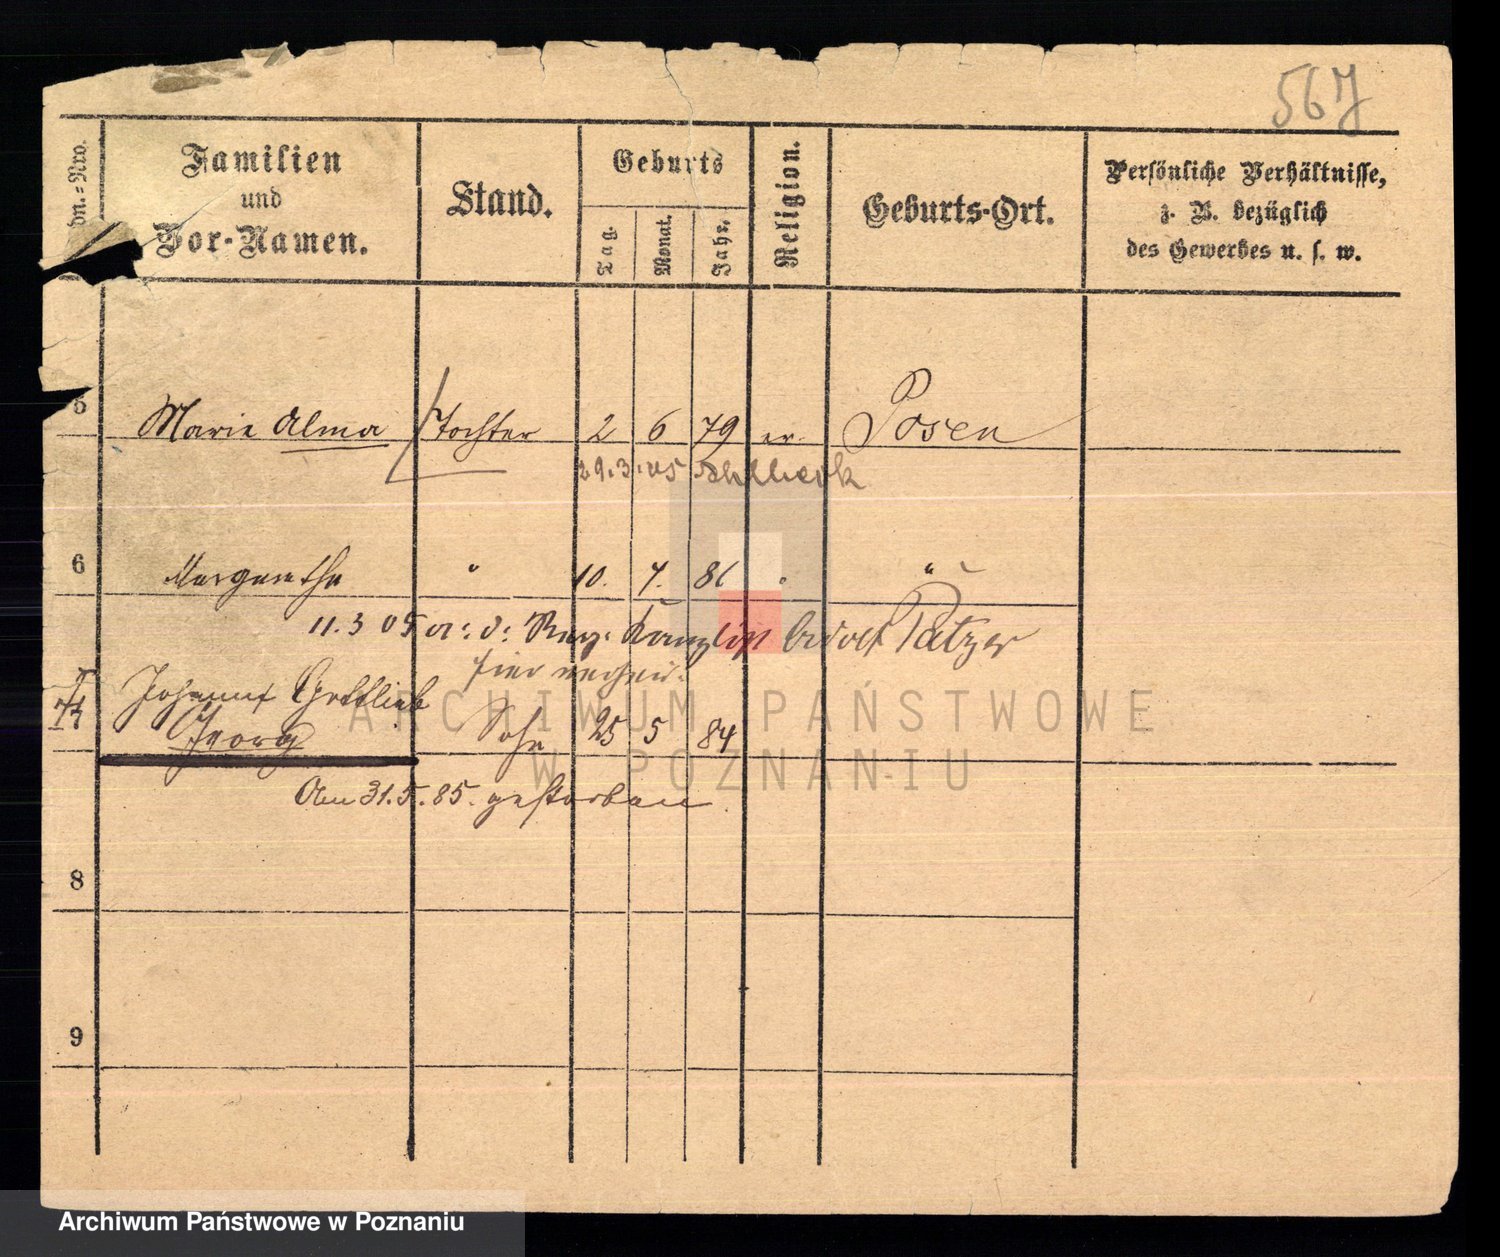 567
dn.=Nro.
Familien
und
Vor-Namen.
Stand.
Geburts
Tag.
Monat.
Jahr.
Religion.
Geburts-Ort.
Persönliche Verhältnisse,
z. B. bezüglich
des Gewerbes u. s. w.
5 Marie Alma Tochter 2 6 79 ev. Posen
29.3.05 Ahlbeck
6 Margarethe " 10. 7. 81 " "
11.3 05 Reg. Kanzlist Patzer
hier verheir.
7 Johannes Gottlieb
Georg Sohn 25 5 84
Am 31.5.85. gestorben
8
9
ARCHIWUM PAŃSTWOWE
W POZNANIU
Archiwum Państwowe w Poznaniu